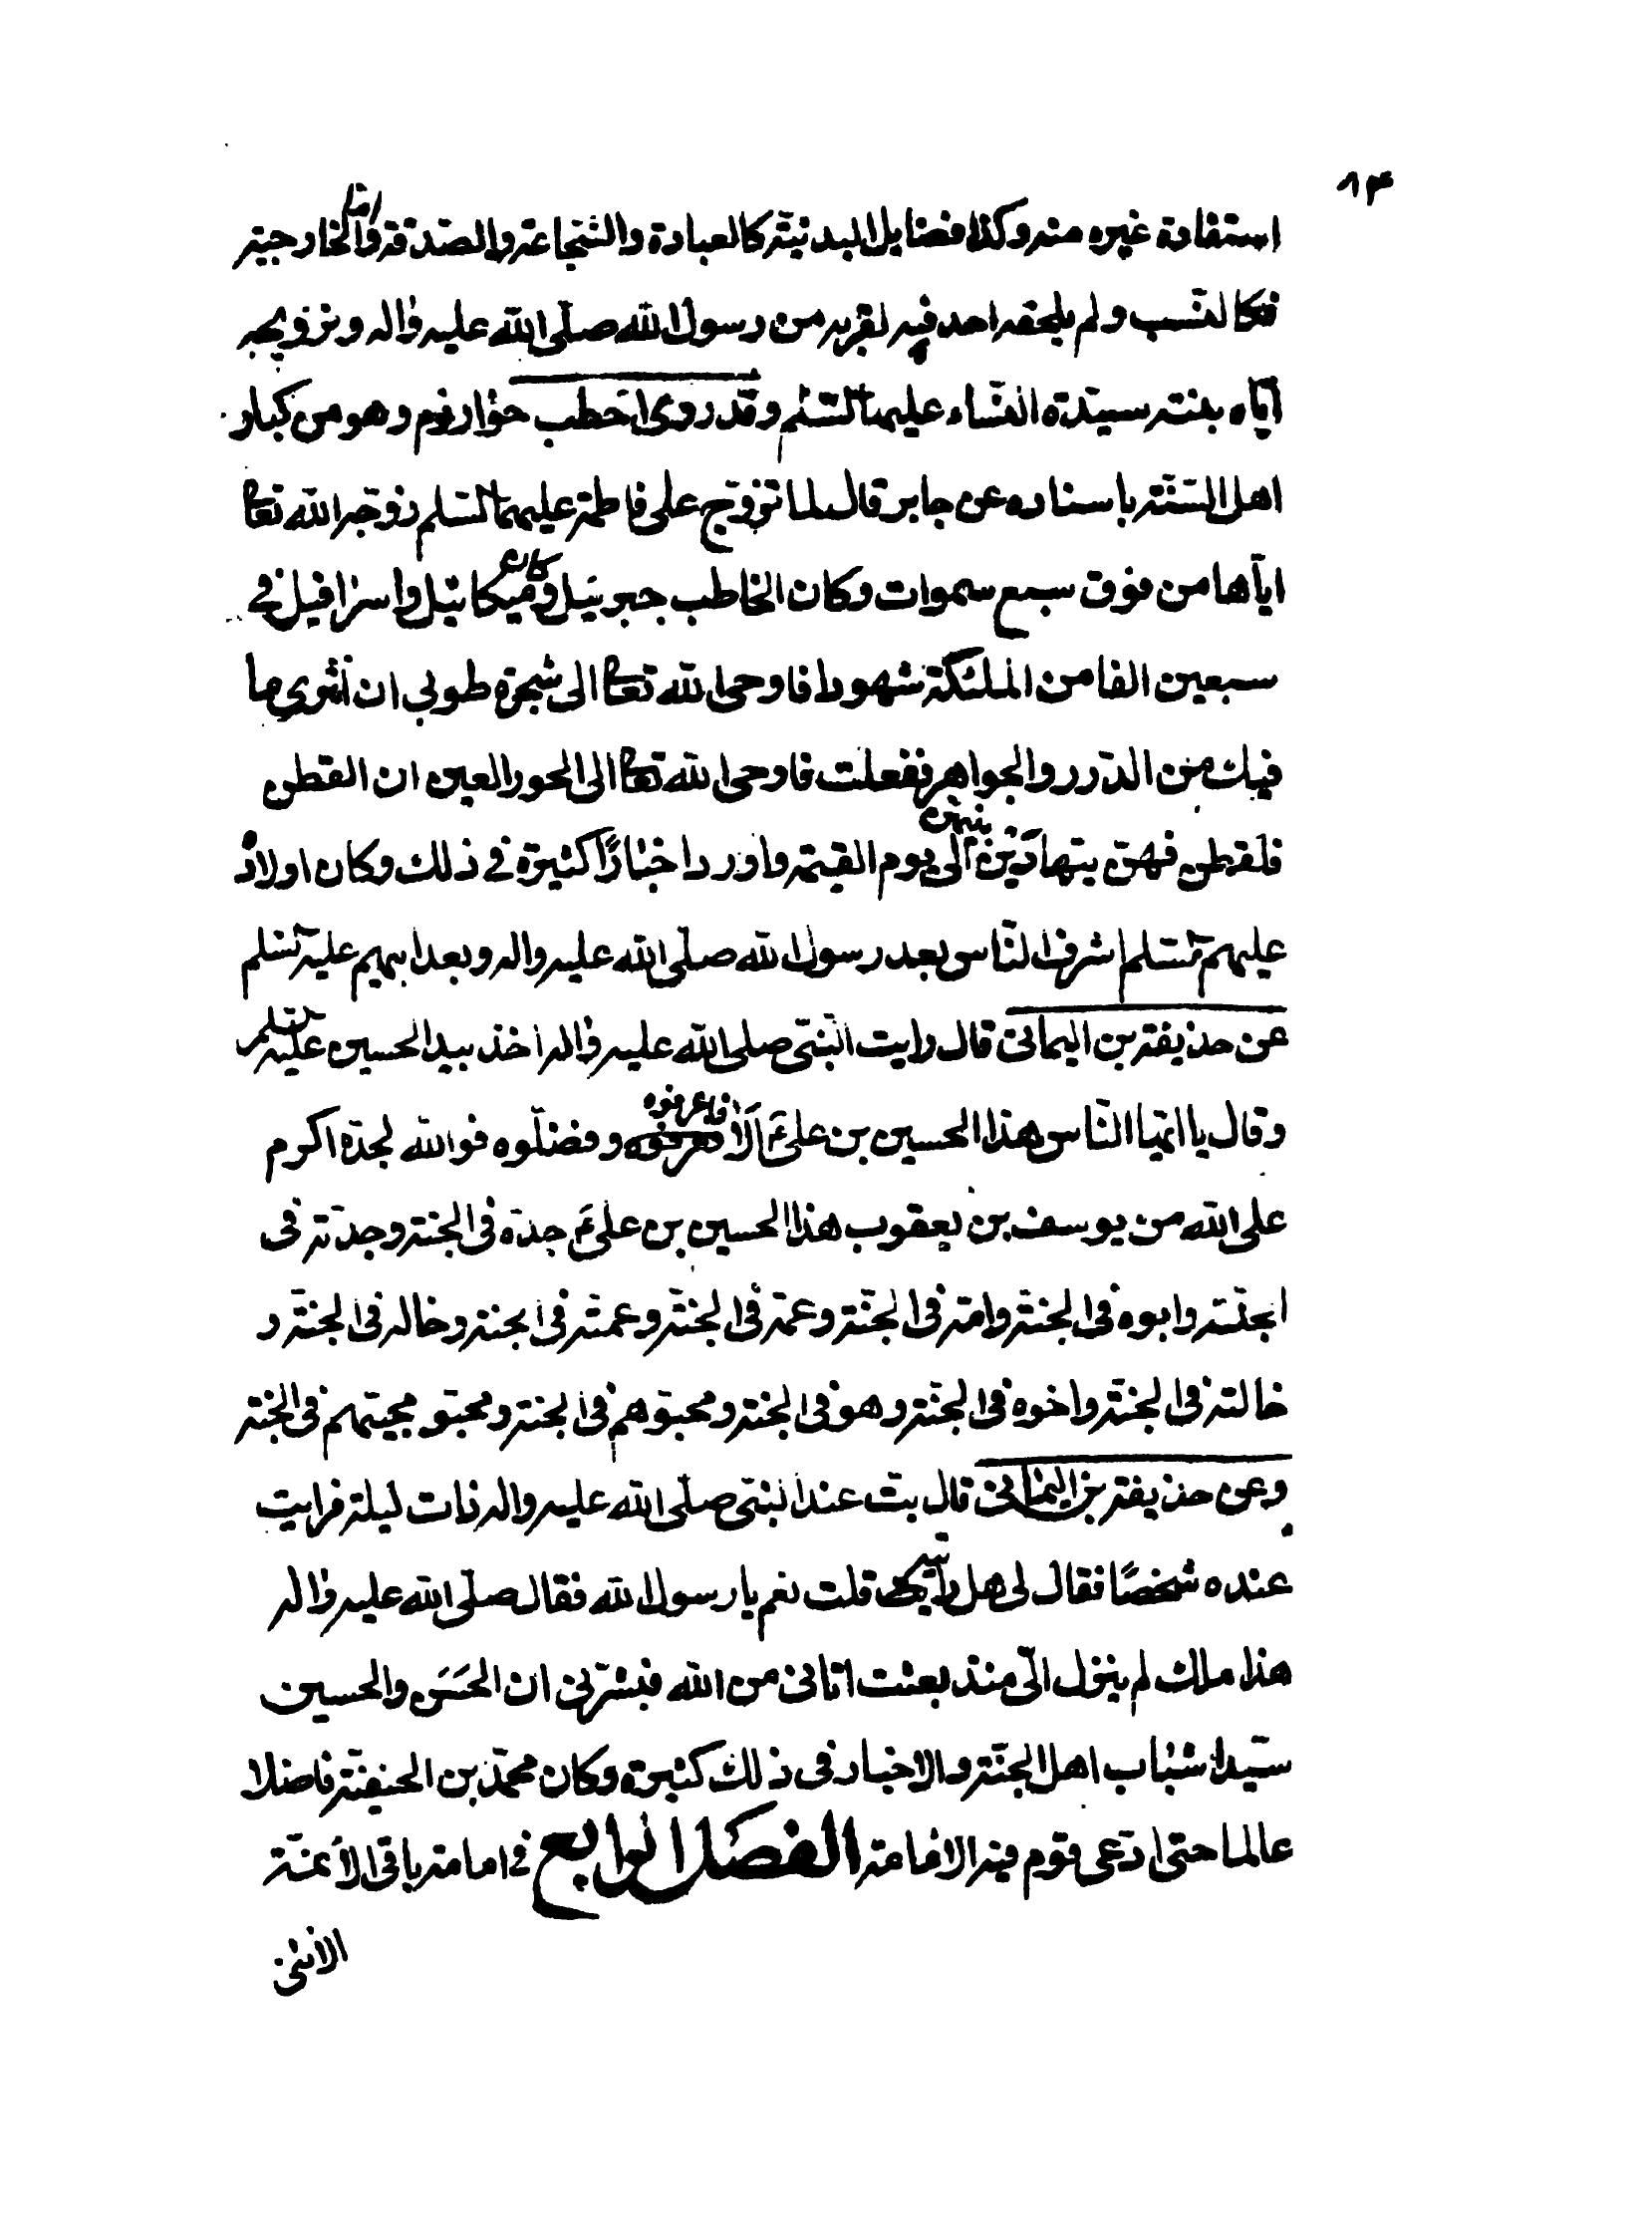 ٨٣
استفادة غيره منه وكذا فضايل البدنيّة كالعبادة والشجاعة والصدقة وامّا الخارجية
فكالنسب ولم يلحقه احد فيه لقربه من رسول الله صلّى الله عليه واله وتزويجه
ايّاه بنته سيّدة النّساء عليهما السّلم وقد روى اخطب خوارزم وهو من كبار
اهل السّنّة باسناده عن جابر قال لما تزوّج على فاطمة عليهما السّلم زوّجه الله تعا
ايّاها من فوق سبع سموات وكان الخاطب جبرئيل وكان ميكائيل واسرافيل في
سبعين الفا من الملئكة شهودا فاوحى الله تعا الى شجرة طوبي ان انثرى ما
فيك من الدّرر والجواهر ففعلت فاوحى الله تعا الى الحور العين ان القطن
فلقطن فهنّ يتهادين بينهنّ الى يوم القيمة واورد اخبارًا كثيرة في ذلك وكان اولاده
عليهم السّلم اشرف النّاس بعد رسول الله صلّى الله عليه واله وبعد ابيهم عليه السّلم
عن حذيفة بن اليمانى قال رايت النّبىّ صلى الله عليه واله اخذ بيد الحسين عليه السّلم
وقال يا ايّها النّاس هذا الحسين بن علىّ ع الا فاعرفوه وفضّلوه فو الله لجدّه اكرم
على الله من يوسف بن يعقوب هذا الحسين بن علىّ ع جدّه فى الجنّة وجدّته فى
الجنّة وابوه فى الجنّة وامّه فى الجنّة وعمّه فى الجنّة وعمّته فى الجنة وخاله فى الجنّة و
خالته فى الجنّة واخوه فى الجنّة وهو فى الجنّة ومحبّوهم فى الجنّة ومحبّو محبّيهم فى الجنّة
وعن حذيفة بن اليمانى قال بتّ عند النبىّ صلّى الله عليه واله ذات ليلة فرايت
عنده شخصًا فقال لى هل رايت قلت نعم يا رسول الله فقال صلّى الله عليه واله
هذا ملك لم ينزل الىّ منذ بعثت اتانى من الله فبشّرنى ان الحَسَن والحسين
سيّدا شباب اهل الجنّة والاخبار فى ذلك كثيرة وكان محمّد بن الحنفيّة فاضلا
عالما حتى ادّعى قوم فيه الامامة الفصل الرابع في امامة باقى الأئمّة
الاثنى